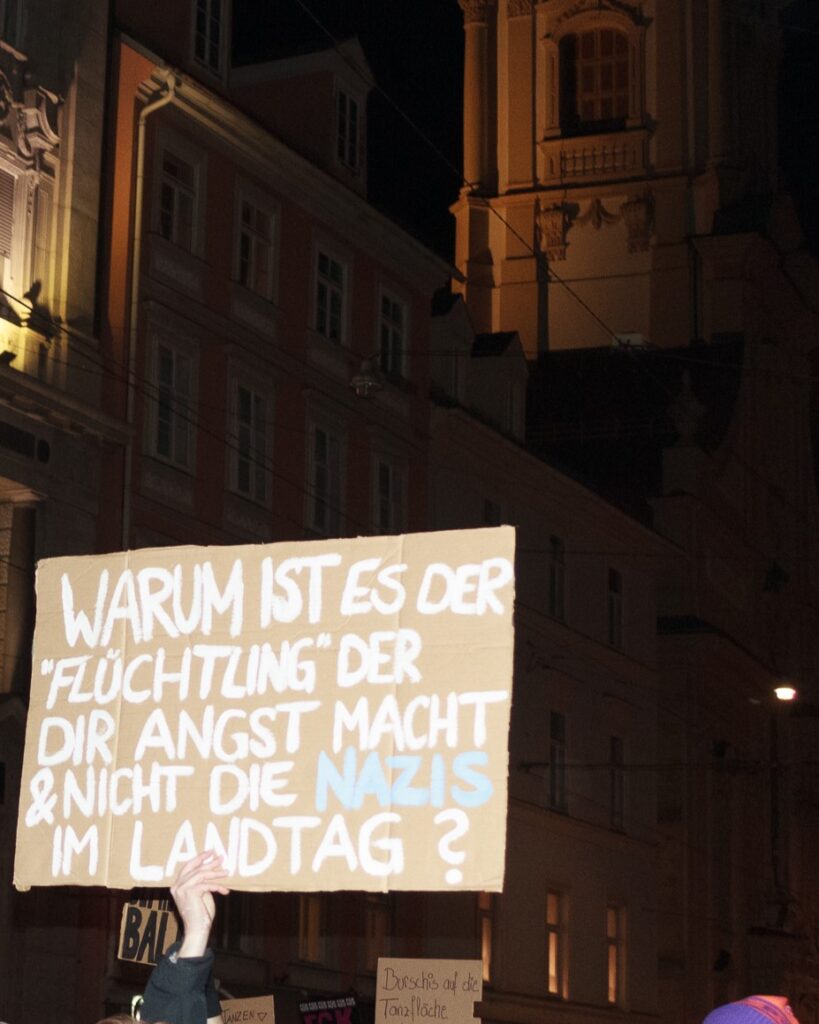 WARUM IST ES DER
"FLÜCHTLING" DER
DIR ANGST MACHT
& NICHT DIE NAZIS
IM LANDTAG ?
BAL
Burschis auf die
Tanzfläche
TANZEN